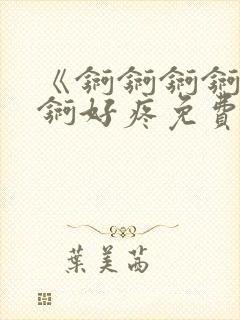 《锕锕锕锕
锕好疼免費
葉美茜